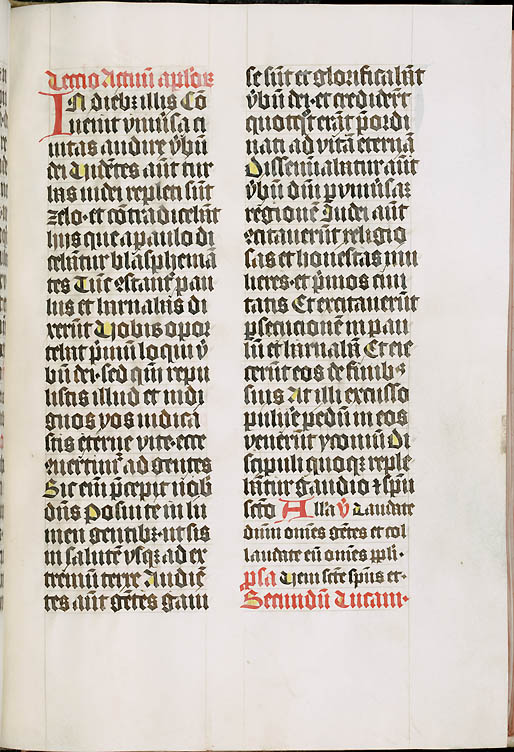 Lectio Actuū apl'or
In dieb; illis Cō
uenit vniu'sa ci
uitas audire v̄bū
dei Videntes aūt tur
bas iudei repleti sūt
zelo · et cōtradicebāt
hijs que a paulo di
cebātur blasphemā
tes Tūc 9stant' pau
lus et barnabas di
xerūt Vobis opor
tebat p'mū loqui v̄
bū dei · sed qm̄ repu
listis illud et indi
gnos vos iudica
stis eterne vite · ecce
9uertimr' ad gentes
Sic em̄ p̄cepit nob
dn̄s Posui te in lu
men gentib; · ut sis
in salutē vsq; ad ex
tremū terre Audiē
tes aūt gētes gaui
se sūt et glorificabāt
v̄bū dei · et crediderūt
quotq̄t erāt p̄ordi
nati ad vitā eternā
Dissemīabatur aūt
v̄bū dn̄i p vniu'sā
regionē Iudei aūt
9citauerūt religio
sas et honestas mu
lieres · et p̄mos ciui
tatis Et excitauerūt
psecucionē in pau
lū et barnabā Et eie
cerūt eos de finib;
suis At illi excusso
puluere pedū in eos
venerūt yconiū Di
scipuli quoq; reple
bātur gaudio ⁊ spū
scto Alla v̄ Laudate
dnm̄ omēs gētes et col
laudate eū omēs ppl'i ·
psa Veni scte spūs et ·
Secundū Lucam ·